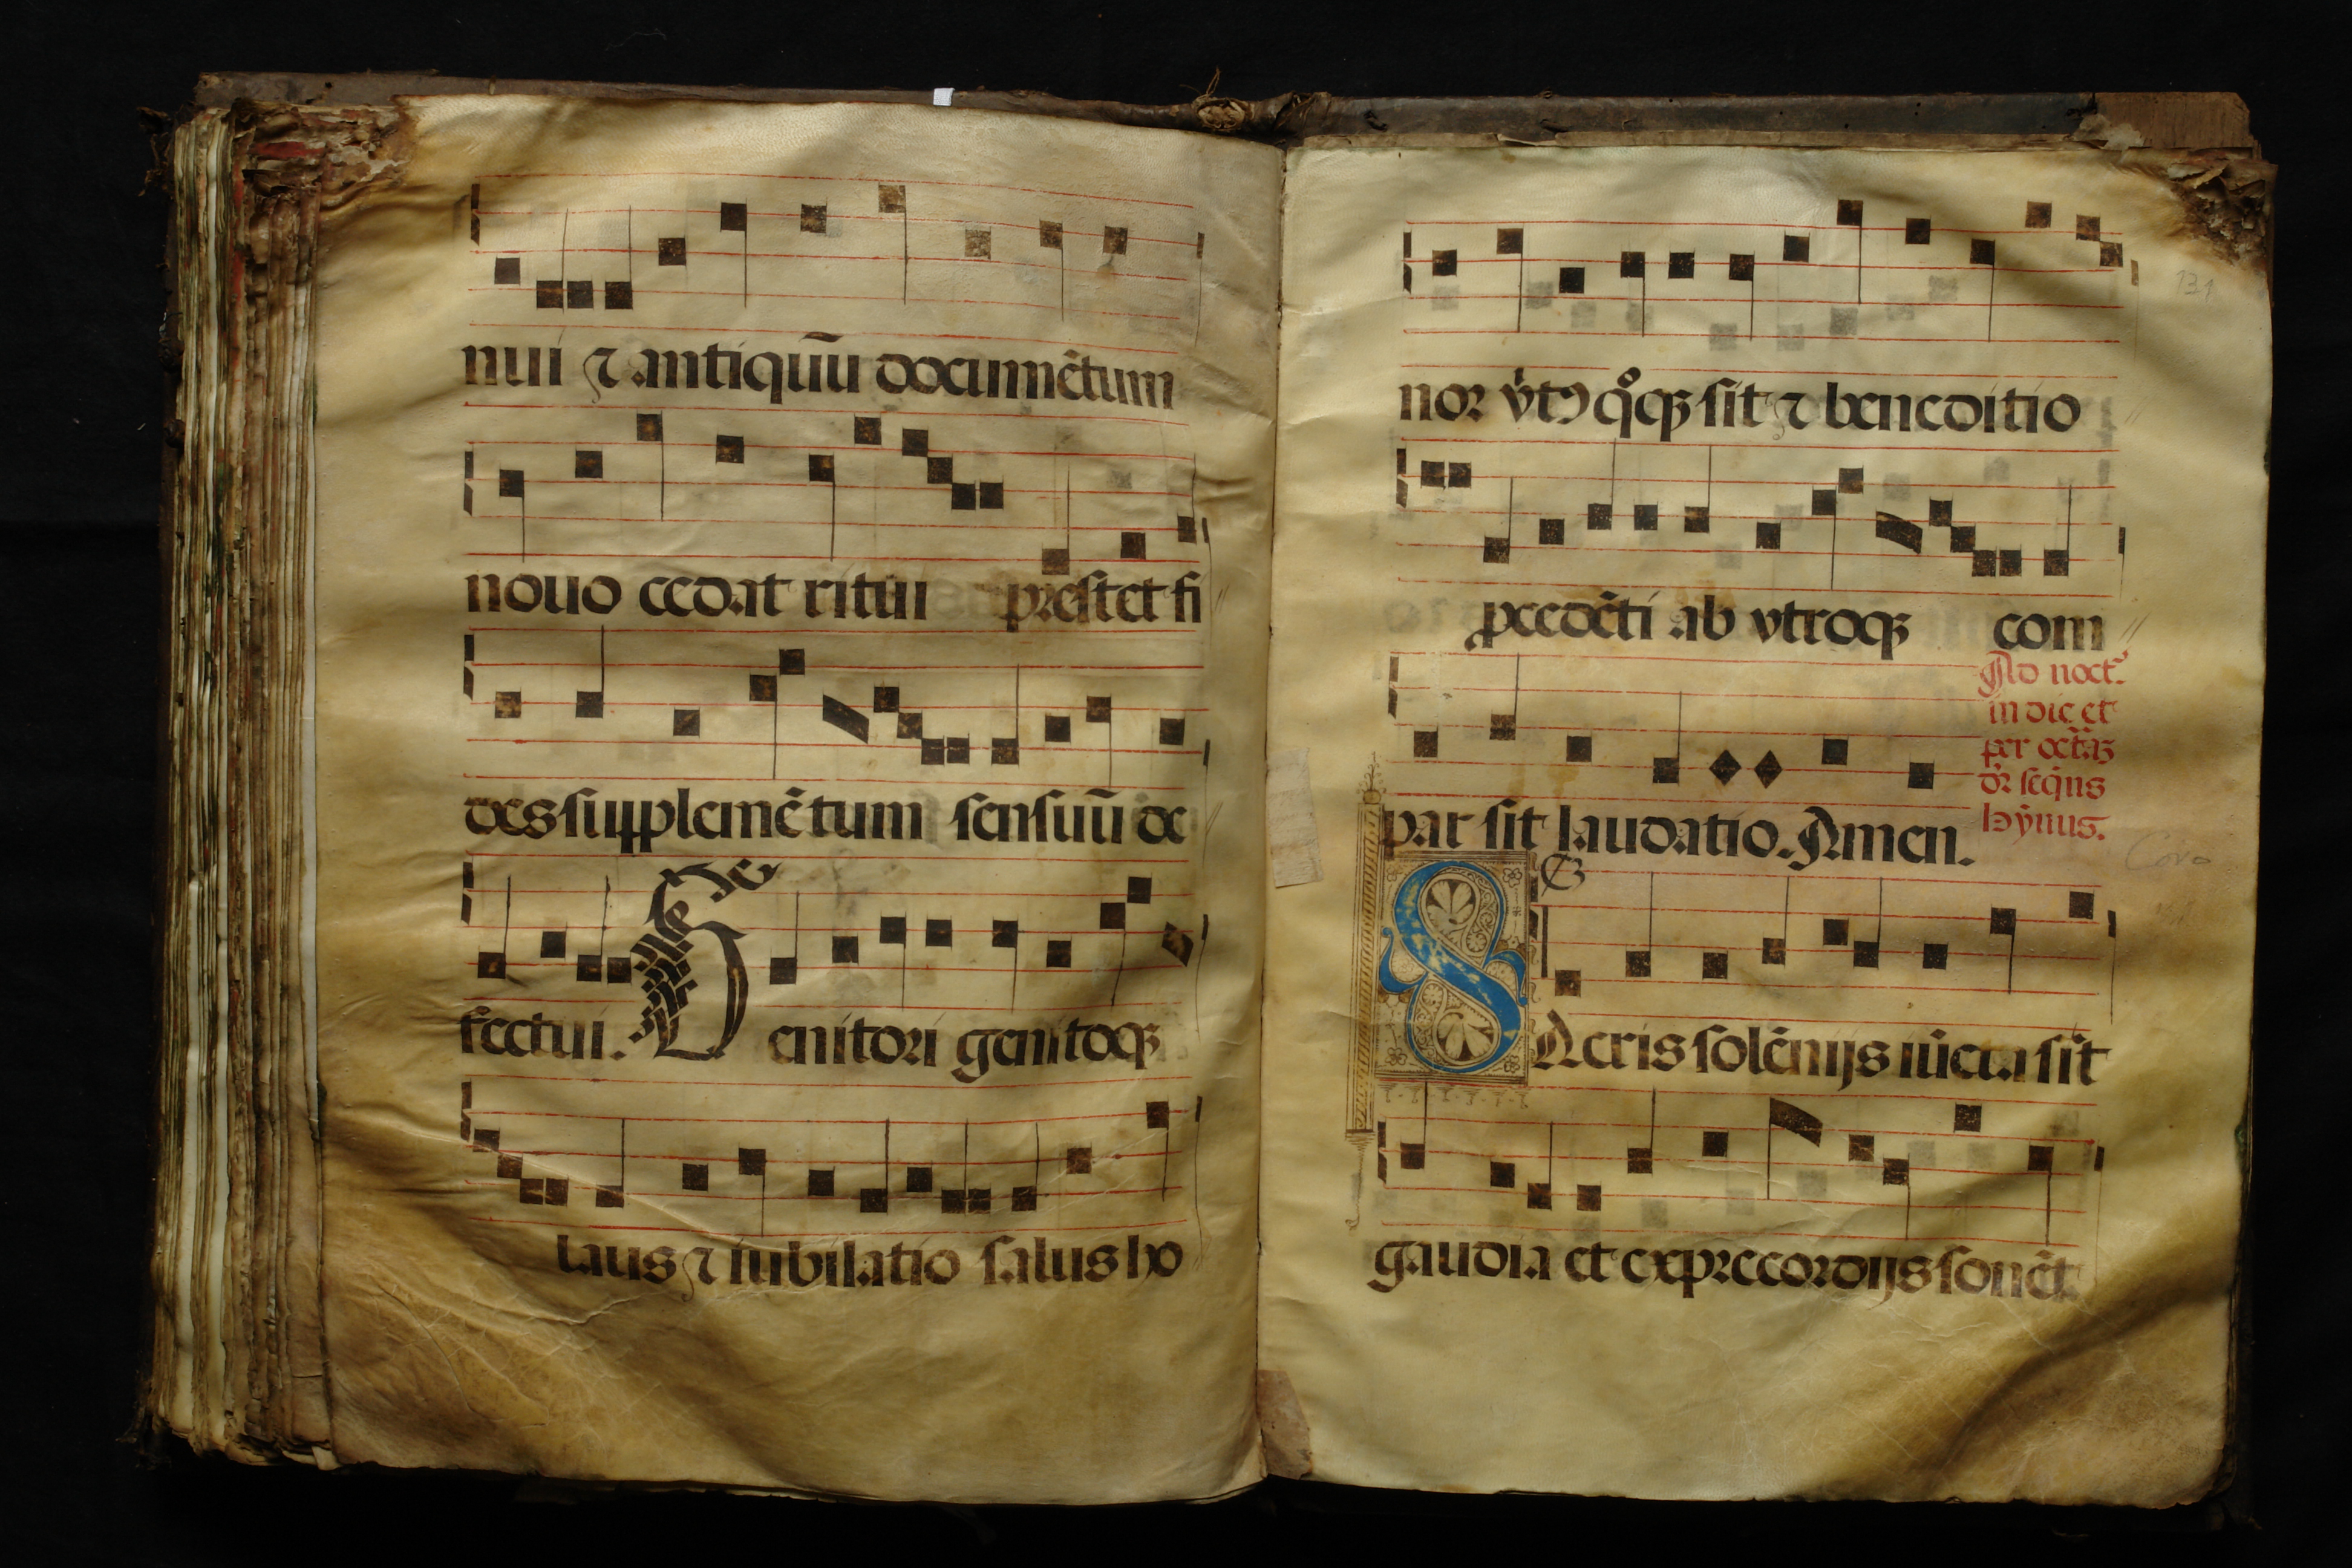 nui ⁊ antiquũ documẽtum
nouo cedat ritui prestet fi
des supplemẽtum sensuũ de
fectui. Genitori genitoqꝫ
laus ⁊ iubilatio salus ho
131
nor v̓tꝰ qͦqꝫ sit ⁊ beneditio
ꝓcedẽti ab vtroqꝫ com
par sit laudatio. Amen.
Ad noct.
in die et
per octãꝫ
dr̃ seq̃ns
hỹnus.
SAcris solẽnijs iũcta sĩt
gaudia et ex precordijs sonẽt